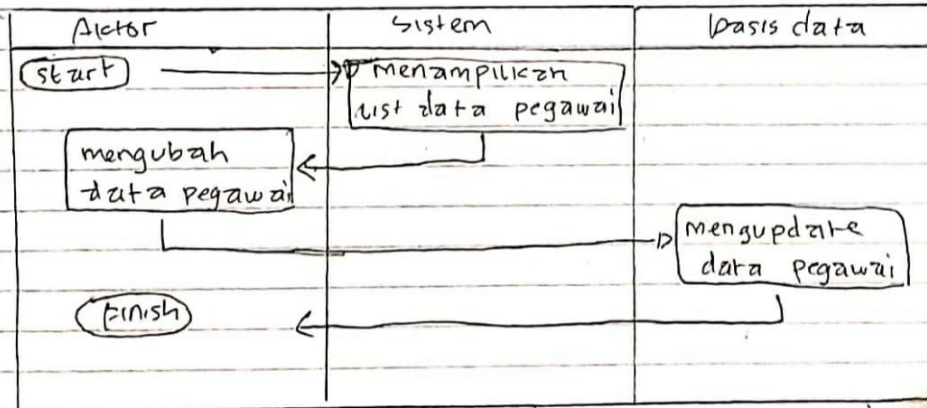 Aktor
Sistem
basis data
start
menampilkan
list data pegawai
mengubah
data pegawai
mengupdate
data pegawai
Finish